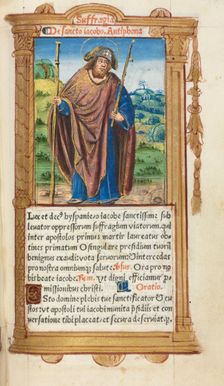 Suffragia
De sancto iacobo. Antiphona
Lux et dec⁹ hyspanie o iacobe sanctissime sub
levator oppressorum suffragium viatorum. qui
inter apostolos primus martir laureatus ob
tines primatum O singulare presidium tuorū
benignus exaudi vota servorum Et intercede
pro nostra omnium salute. Ora pro no
bis beate iacobe. Ut digni efficiamur p
missionibus christi. Oratio.
Esto domine plebis tue sanctificator Et cu
stos ut apostoli tui iacobi munita presidiis et con
versatione tibi placeat et secura deserviat. p